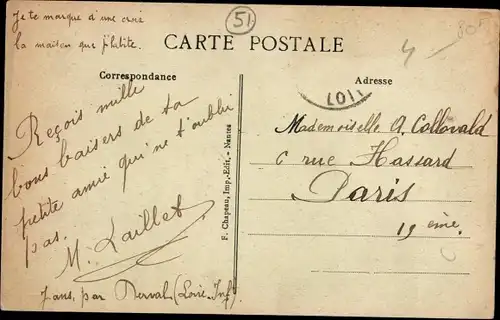 Je te marque d'une croix
la maison que j'habite.
51
CARTE POSTALE
4
Correspondance
Adresse
LOI
Reçois mille
bons baisers de ta
petite amie qui ne t'oublie
pas.
M. Laillet
Jans, par Derval (Loire-Inf)
F. Chapeau, Imp.-Edit., - Nantes
Mademoiselle A. Collovald
6 rue Hassard
Paris
19 ème.